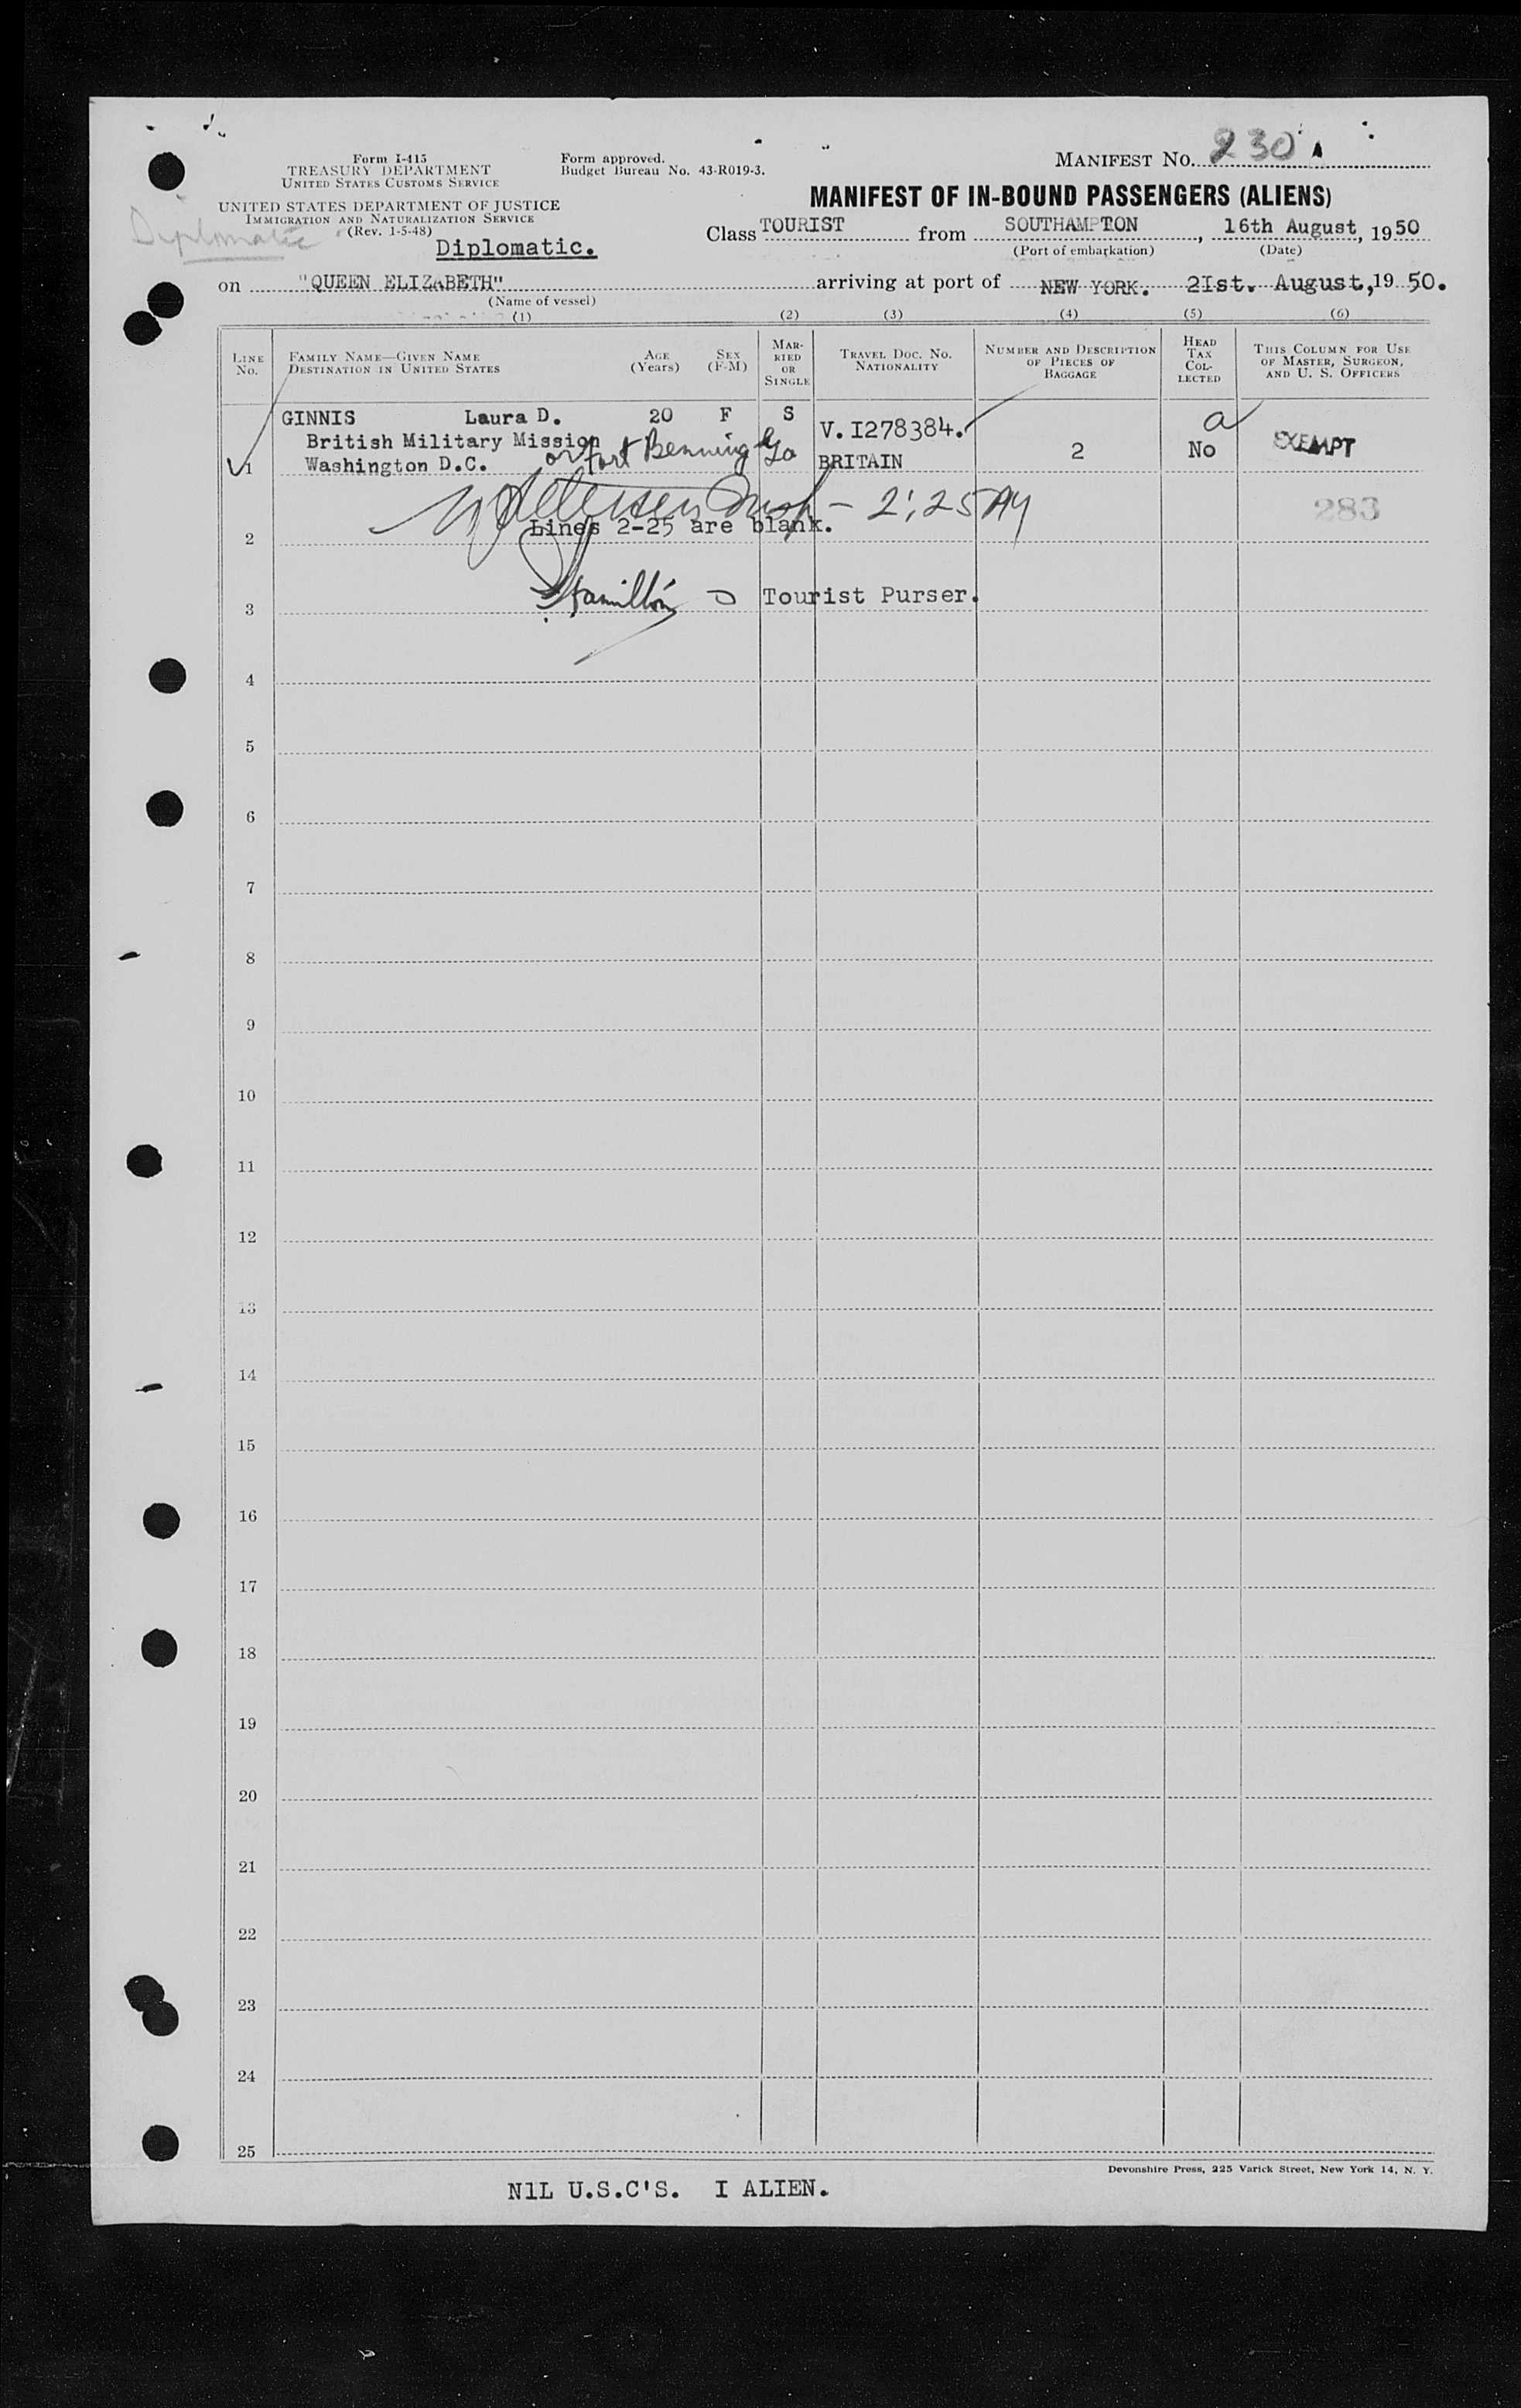 Form I-415
TREASURY DEPARTMENT
UNITED STATES CUSTOMS SERVICE
UNITED STATES DEPARTMENT OF JUSTICE
IMMIGRATION AND NATURALIZATION SERVICE
(Rev. 1-5-48)
Diplomatic
Diplomatic.
Form approved.
Budget Bureau No. 43-R019-3.
MANIFEST No. 230
MANIFEST OF IN-BOUND PASSENGERS (ALIENS)
Class TOURIST from SOUTHAMPTON, 16th August, 1950
(Port of embarkation) (Date)
on "QUEEN ELIZABETH" arriving at port of NEW YORK. 2Ist. August, 1950.
(Name of vessel)
(1) (2) (3) (4) (5) (6)
LINE No.
FAMILY NAME—GIVEN NAME DESTINATION IN UNITED STATES
AGE (Years)
SEX (F-M)
MARRIED OR SINGLE
TRAVEL DOC. NO. NATIONALITY
NUMBER AND DESCRIPTION OF PIECES OF BAGGAGE
HEAD TAX COLLECTED
THIS COLUMN FOR USE OF MASTER, SURGEON, AND U. S. OFFICERS
GINNIS Laura D. 20 F S V. I278384. a
British Military Mission or Fort Benning Ga
1 Washington D.C. BRITAIN 2 No EXEMPT
2:25
283
Lines 2-25 are blank.
2
Hamilton Tourist Purser.
3
4
5
6
7
8
9
10
11
12
13
14
15
16
17
18
19
20
21
22
23
24
25
Devonshire Press, 225 Varick Street, New York 14, N. Y.
N1L U.S.C'S. I ALIEN.